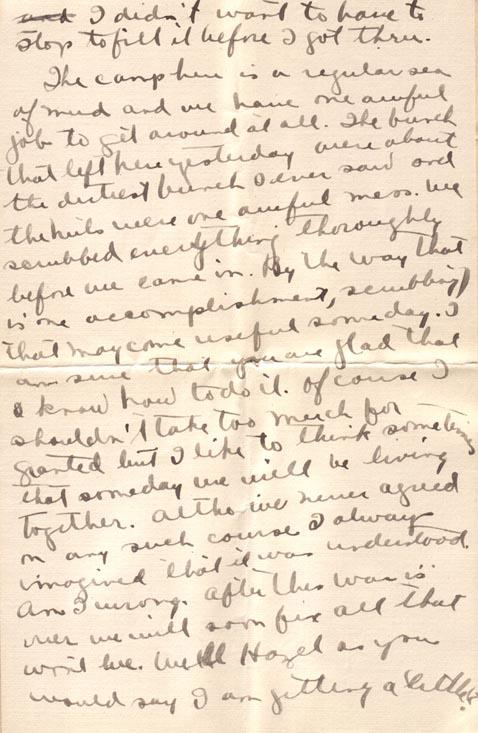 and I didn't want to have to
stop to fill it before I got thru.
The camp here is a regular sea
of mud and we have one awful
job to get around at all. The bunch
that left here yesterday were about
the dirtiest bunch I ever saw and
the huts were one awful mess. We
scrubbed everything thoroughly
before we came in. By the way that
is one accomplishment, (scrubbing)
that may come useful someday. I
am sure that you are glad that
I know how to do it. Of course I
shouldn't take too much for
granted but I like to think sometimes
that someday we will be living
together. Altho we never agreed
on any such course I always
imagined that it was understood.
Am I wrong. After this war is
over we will soon fix all that
wont we. Well Hazel as you
would say I am getting a "little"